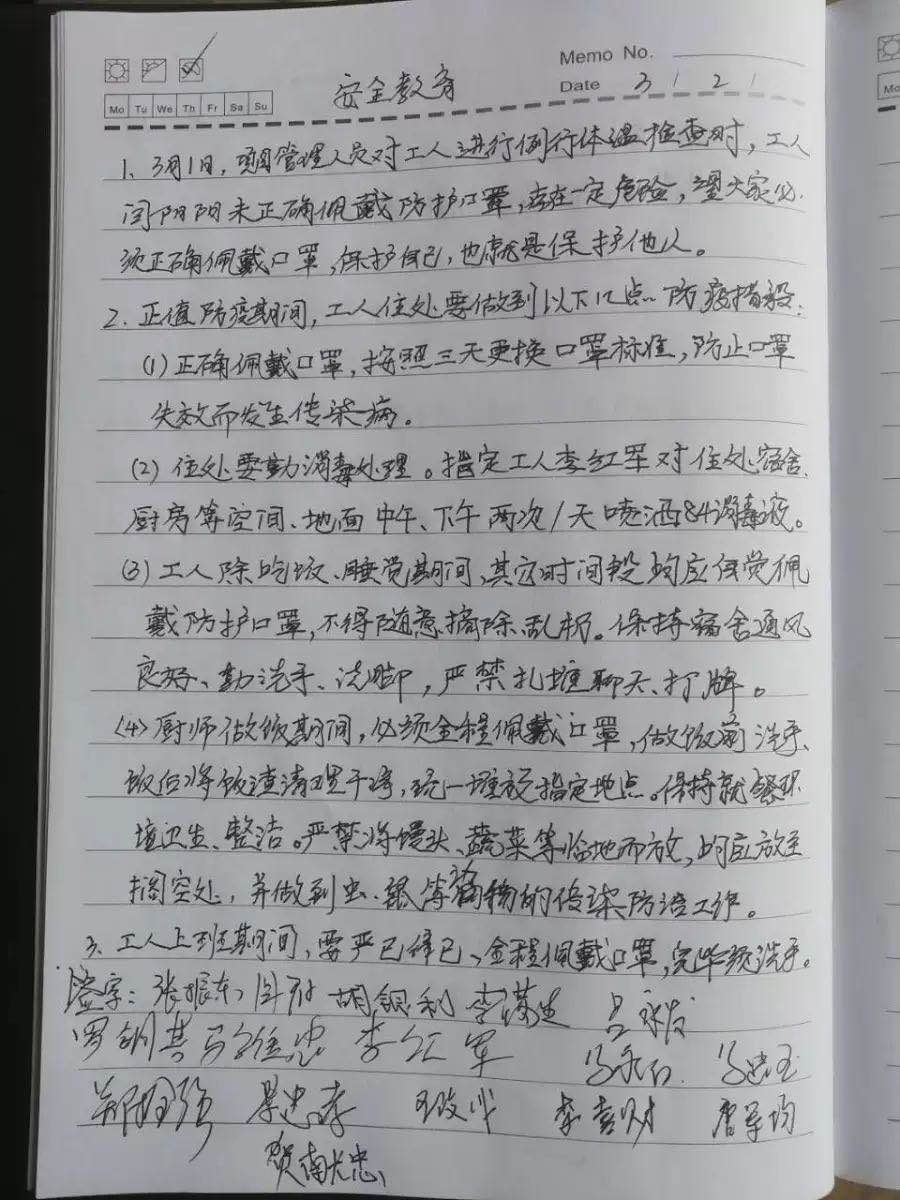 Memo No.
安全教育
Mo Tu We Th Fr Sa Su
Date 3 / 2 /
1、3月1日，项目管理人员对工人进行例行体温检查时，工人
闫阳阳未正确佩戴防护口罩，存在一定危险，望大家必
须正确佩戴口罩，保护自己，也就是保护他人。
2、正值防疫期间，工人住处要做到以下几点防疫措施：
(1) 正确佩戴口罩，按照三天更换口罩标准，防止口罩
失效而发生传染病。
(2) 住处要勤消毒处理。指定工人李红军对住处宿舍、
厨房等空间、地面中午、下午两次/天喷洒84消毒液。
(3) 工人除吃饭、睡觉期间，其它时间段均应自觉佩
戴防护口罩，不得随意摘除乱扔。保持宿舍通风
良好、勤洗手、洗脚，严禁扎堆聊天、打牌。
(4) 厨师做饭期间，必须全程佩戴口罩，做饭前洗手、
饭后将饭渣清理干净，统一堆放指定地点。保持就餐环
境卫生、整洁。严禁将馒头、蔬菜等临地而放，均应放至
搁空处，并做到虫、鼠等动物的传染防治工作。
3、工人上班期间，要严己律己、全程佩戴口罩，完毕须洗手。
签字：张振东 胡银利 李满生 吕永发
罗钥其 马维忠 李红军 马忠玉
郑国强 景忠孝 李喜财 唐军均
贺南长忠